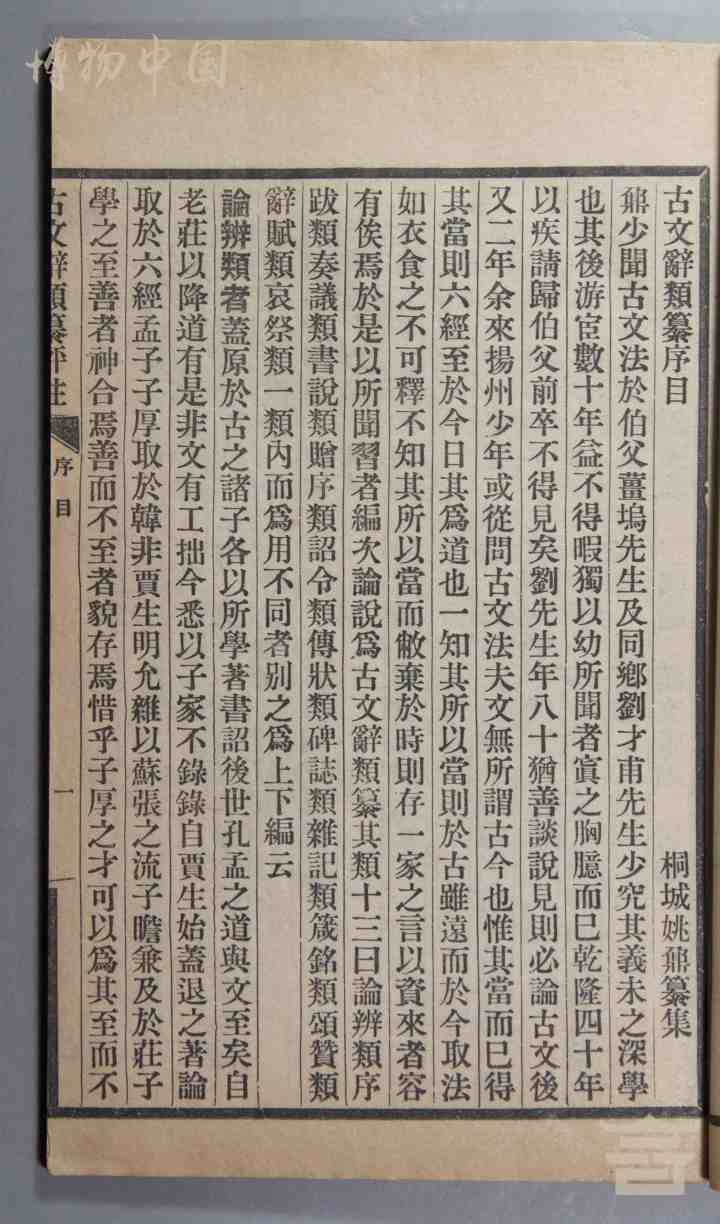 博物中国
古文辭類纂序目
桐城姚鼐纂集
鼐少聞古文法於伯父薑塢先生及同鄉劉才甫先生少究其義未之深學
也其後游宦數十年益不得暇獨以幼所聞者寘之胸臆而已乾隆四十年
以疾請歸伯父前卒不得見矣劉先生年八十猶善談說見則必論古文後
又二年余來揚州少年或從問古文法夫文無所謂古今也惟其當而已得
其當則六經至於今日其爲道也一知其所以當則於古雖遠而於今取法
如衣食之不可釋不知其所以當而敝棄於時則存一家之言以資來者容
有俟焉於是以所聞習者編次論說爲古文辭類纂其類十三曰論辨類序
跋類奏議類書說類贈序類詔令類傳狀類碑誌類雜記類箴銘類頌贊類
辭賦類哀祭類一類內而爲用不同者别之爲上下編云
論辨類者蓋原於古之諸子各以所學著書詔後世孔孟之道與文至矣自
老莊以降道有是非文有工拙今悉以子家不錄錄自賈生始蓋退之著論
取於六經孟子子厚取於韓非賈生明允雜以蘇張之流子瞻兼及於莊子
學之至善者神合焉善而不至者貌存焉惜乎子厚之才可以爲其至而不
古文辭類纂評註
序目
一